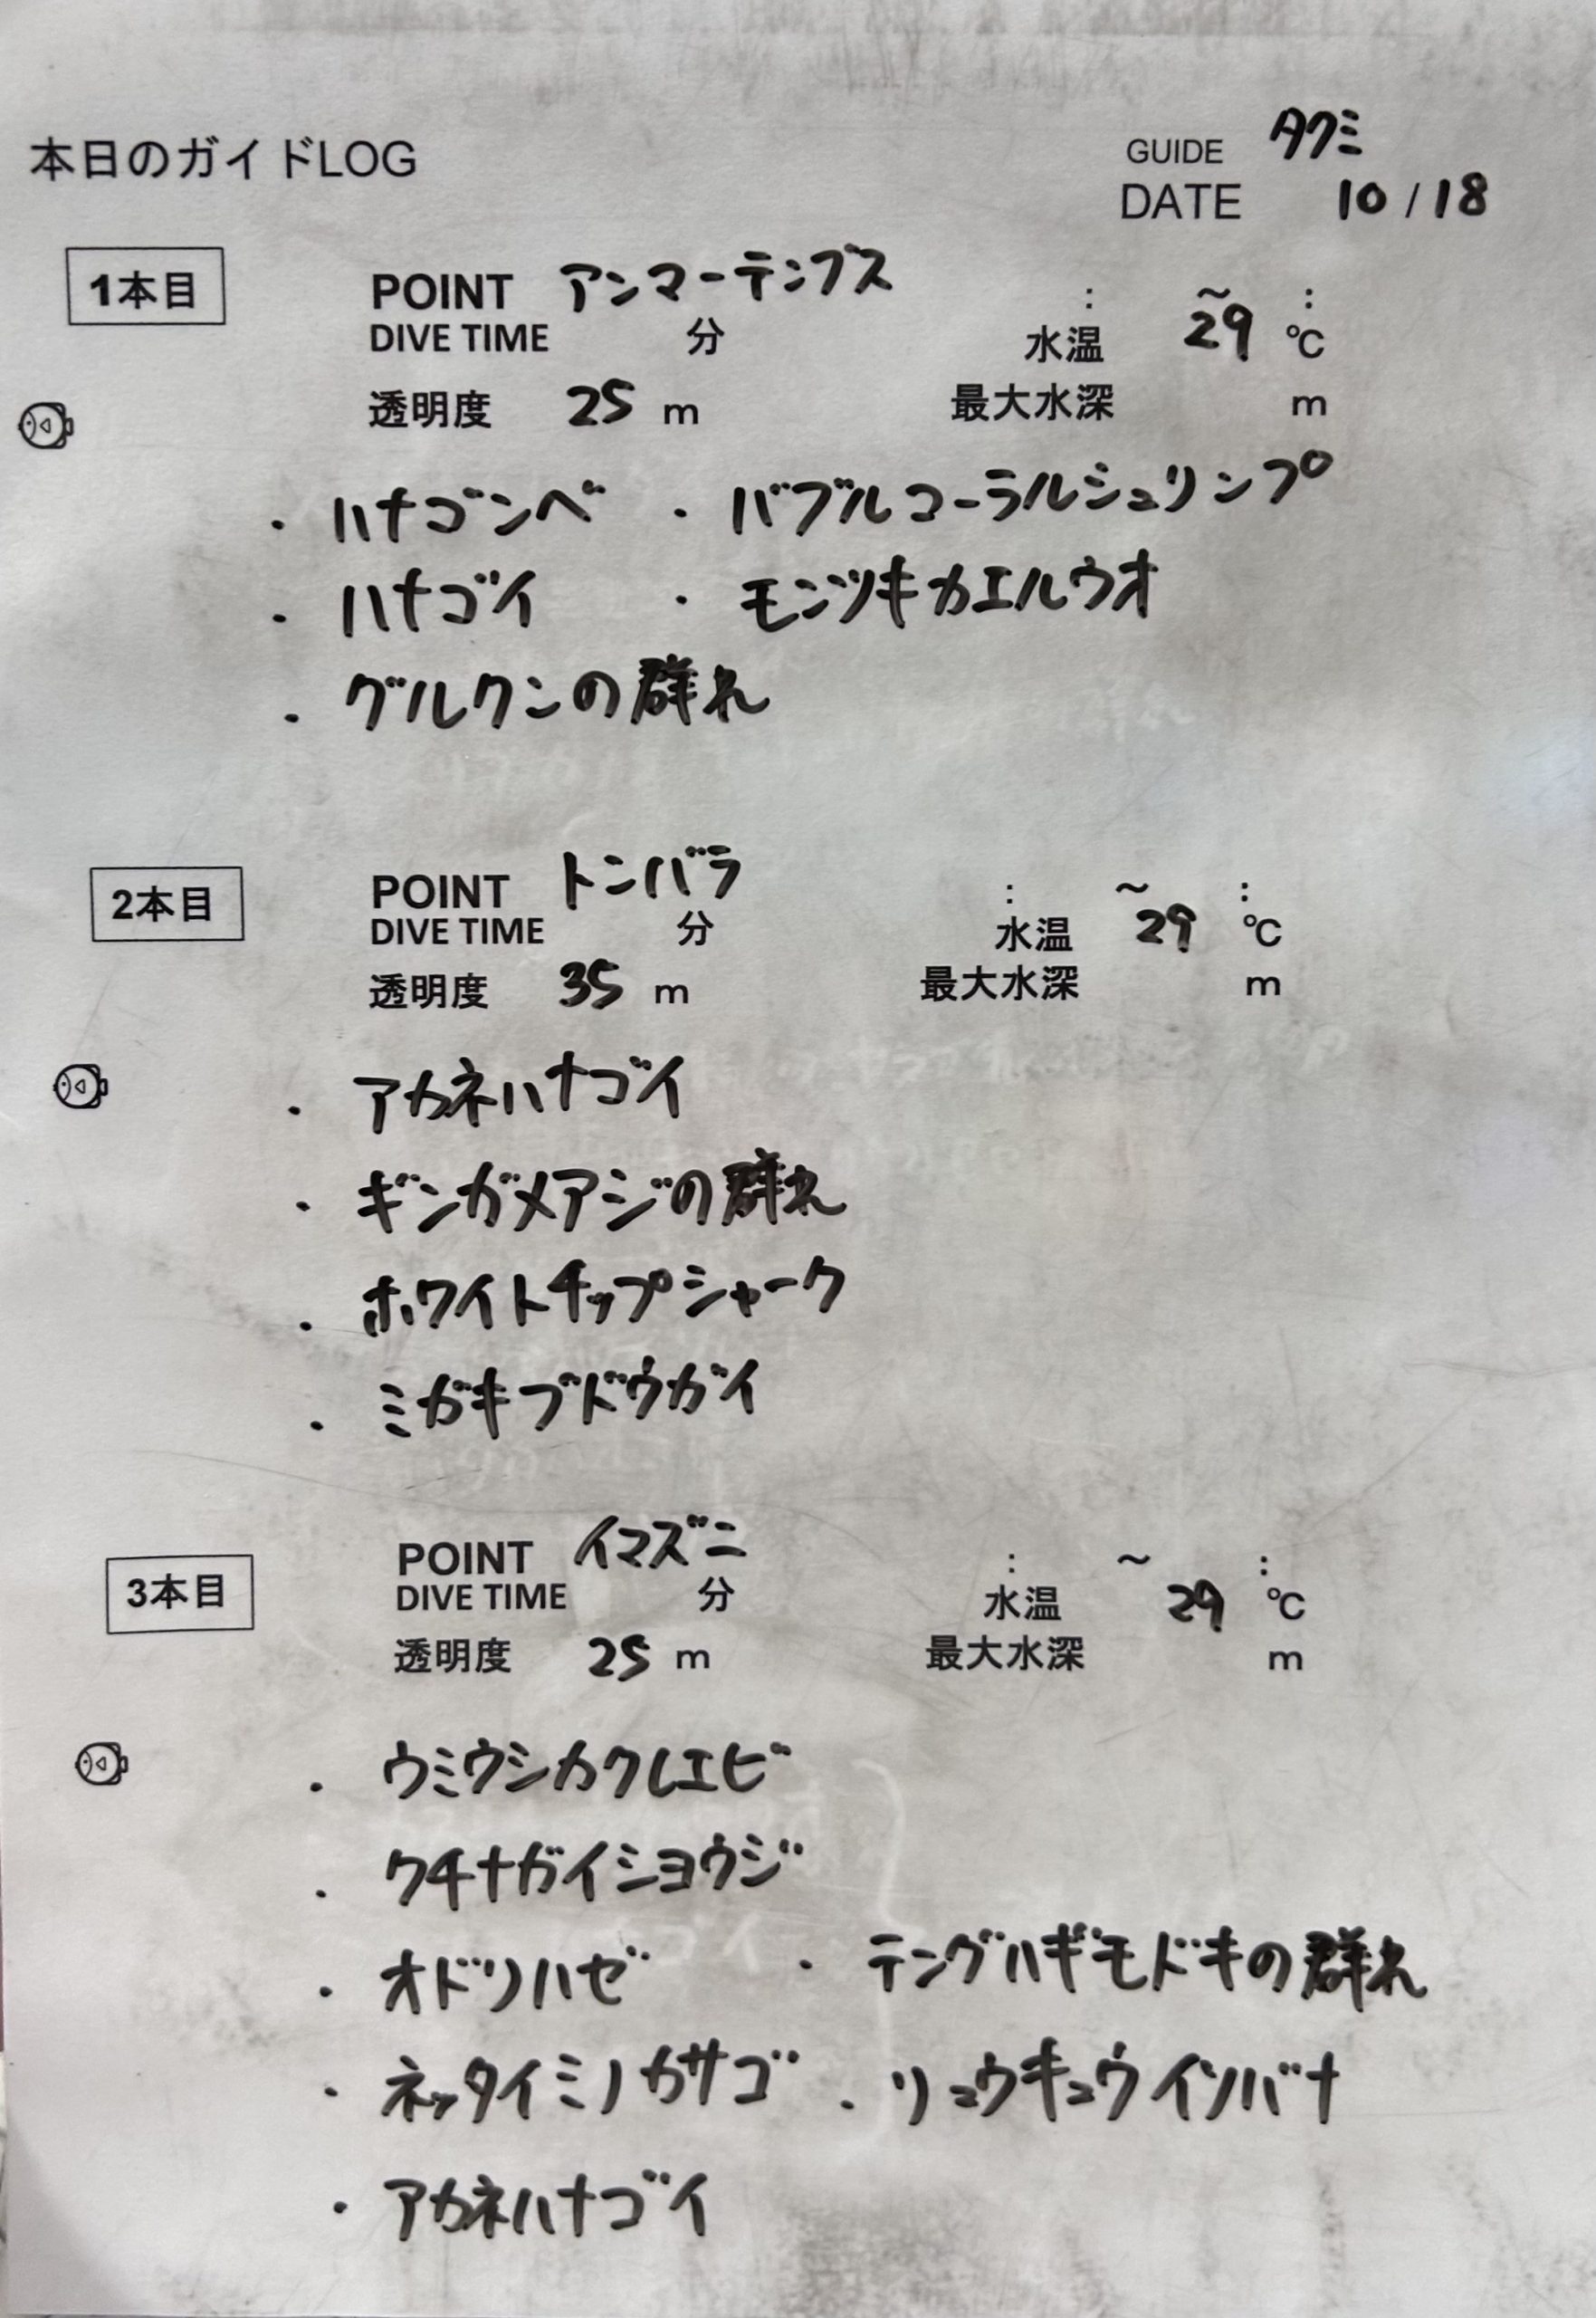 本日のガイドLOG
GUIDE タクミ
DATE 10/18
1本目
POINT アンマーテンブス : ~ :
DIVE TIME 分 水温 29 ℃
透明度 25 m 最大水深 m
・ハナゴンベ ・バブルコーラルシュリンプ
・ハナゴイ ・モンツキカエルウオ
・グルクンの群れ
2本目
POINT トンバラ : ~ :
DIVE TIME 分 水温 29 ℃
透明度 35 m 最大水深 m
・アカネハナゴイ
・ギンガメアジの群れ
・ホワイトチップシャーク
・ミガキブドウガイ
3本目
POINT イマズニ : ~ :
DIVE TIME 分 水温 29 ℃
透明度 25 m 最大水深 m
・ウミウシカクレエビ
・クチナガイシヨウジ
・オドリハゼ ・テングハギモドキの群れ
・ネッタイミノカサゴ ・リュウキュウイソバナ
・アカネハナゴイ